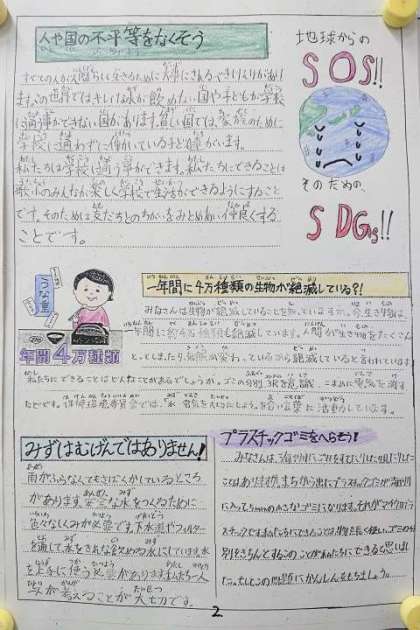 人や国の不平等をなくそう
地球からの
SOS!!
そのための、
SDGs!!
すべての人が
世界ではきれいな水が飲めない国や子どもが学校
に通う事ができない国があります。貧しい国では、家族のために
学校に通わずに働いている子どもがいます。
私たちは学校に通う事ができます。私たちにできることは
最小のみんなが楽しく学校で生活ができるようにすること
です。そのために友だちとのちがいをみとめ合い仲良くする
ことです。
うな重
年間4万種類
一年間に4万種類の生物が絶滅している?!
みなさんは生物が絶滅していることを知っていますか。今、生き物は、
一年間に約4万種類も絶滅しています。人間が生き物をたくさん
とってしまったり、自然が変わっているから絶滅していると言われています
私たちにできることはどんなことがあるでしょうか。ゴミの分別、3Rを意識、こまめに電気を消す
などです。
みずはむげんではありません!
雨がふらなくてもさばくがしているところ
があります。安全な水をつくるために
色々なしくみが必要です。下水道やフィルター
を通して水をきれいな飲める水にしています。水
を上手に使う必要があります。私たち一人一
人が考えることが大切です。
プラスチックゴミをへらそう!
みなさんは、
ことはありますか。まちから出たプラスチックゴミが海や川
に入って5mmの小さなゴミになります。それがマイクロプラ
スチックです。私たちにできることは、物を長く使い、ゴミの分
別をきちんとすることが私たちにできると思いまし
た。
2